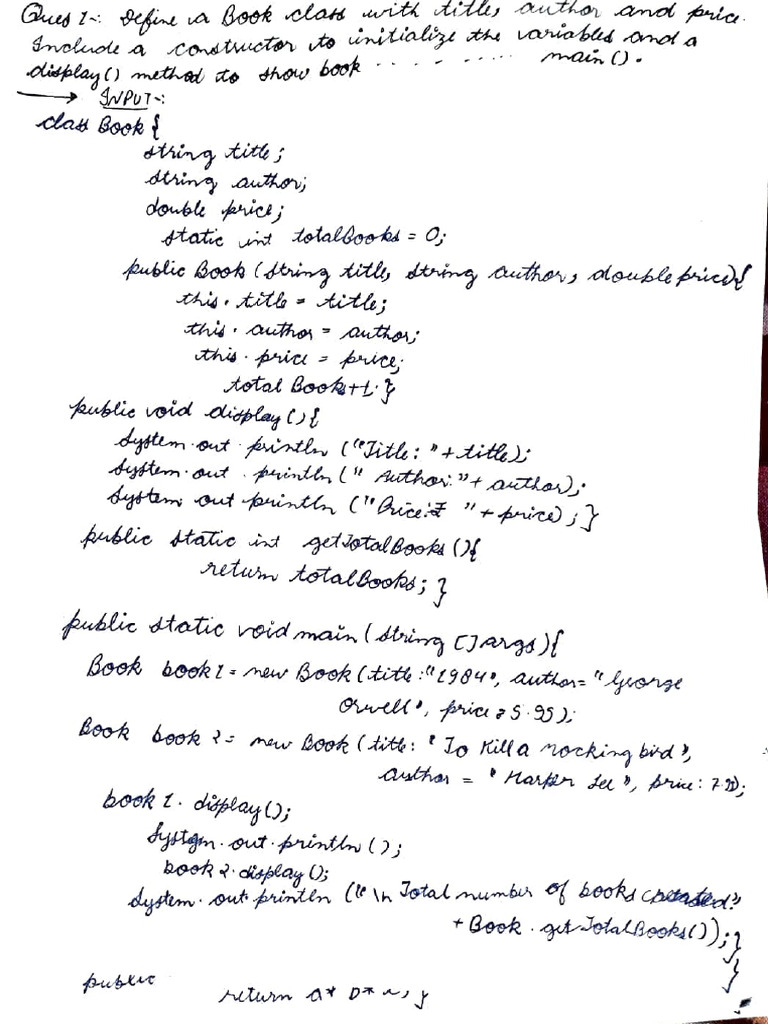 Ques 1-: Define a Book class with title, author and price.
Include a constructor to initialize the variables and a
display() method to show book . . . . . . . . . . main().
→ INPUT-:
class Book {
string title;
string author;
double price;
static int totalBooks = 0;
public Book (string title, string author, double price){
this. title = title;
this. author = author;
this. price = price;
total Book++. }
public void display(){
System. out. println ("Title: "+ title);
System. out. println (" Author: "+ author);
System out println ("Price:₹ "+ price) ; }
public static int getTotalBooks (){
return totalBooks; }
public static void main (string []args){
Book book 1 = new Book (title :"1984", author= "George
Orwell", price: 5.95);
Book book 2 = new Book (title: "To Kill a mocking bird",
author = "Harper Lee", price: 7.
book 1. display();
System. out. println ();
book 2. display();
System. out. println ("\n Total number of books created"
+ Book. getTotalBooks()); }
}
public
return a*